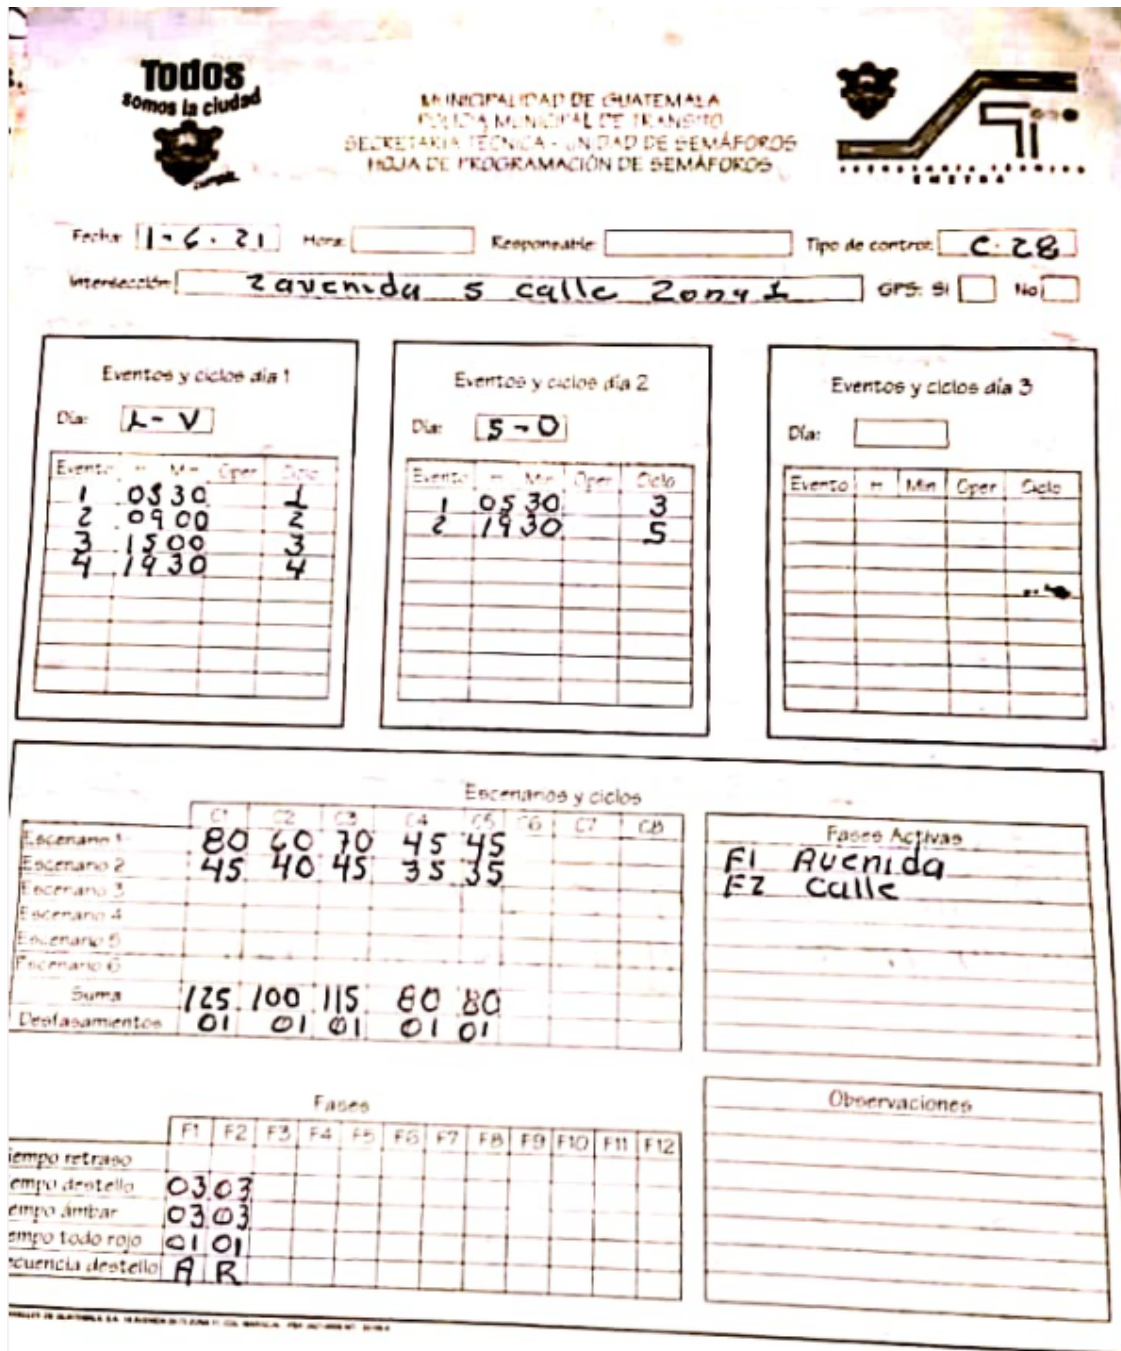 Todos
somos la ciudad
MUNICIPALIDAD DE GUATEMALA
POLICIA MUNICIPAL DE TRANSITO
SECRETARIA TÉCNICA - UNIDAD DE SEMÁFOROS
HOJA DE PROGRAMACIÓN DE SEMÁFOROS
EMETRA
Fecha: 1-6-21 Hora: Responsable: Tipo de control: C-28
Intersección: 2 avenida 5 calle Zona 1 GPS: Si No
Eventos y ciclos día 1
Día: L-V
Evento H Min Oper Ciclo
1 05 30 1
2 09 00 2
3 15 00 3
4 19 30 4
Eventos y ciclos día 2
Día: S-D
Evento H Min Oper Ciclo
1 05 30 3
2 19 30 5
Eventos y ciclos día 3
Día:
Evento H Min Oper Ciclo
Escenarios y ciclos
C1 C2 C3 C4 C5 C6 C7 C8
Escenario 1 80 60 70 45 45
Escenario 2 45 40 45 35 35
Escenario 3
Escenario 4
Escenario 5
Escenario 6
Suma 125 100 115 80 80
Desfasamientos 01 01 01 01 01
Fases Activas
F1 Avenida
F2 calle
Fases
F1 F2 F3 F4 F5 F6 F7 F8 F9 F10 F11 F12
iempo retraso
empo destello 03 03
empo ámbar 03 03
empo todo rojo 01 01
ecuencia destello A R
Observaciones